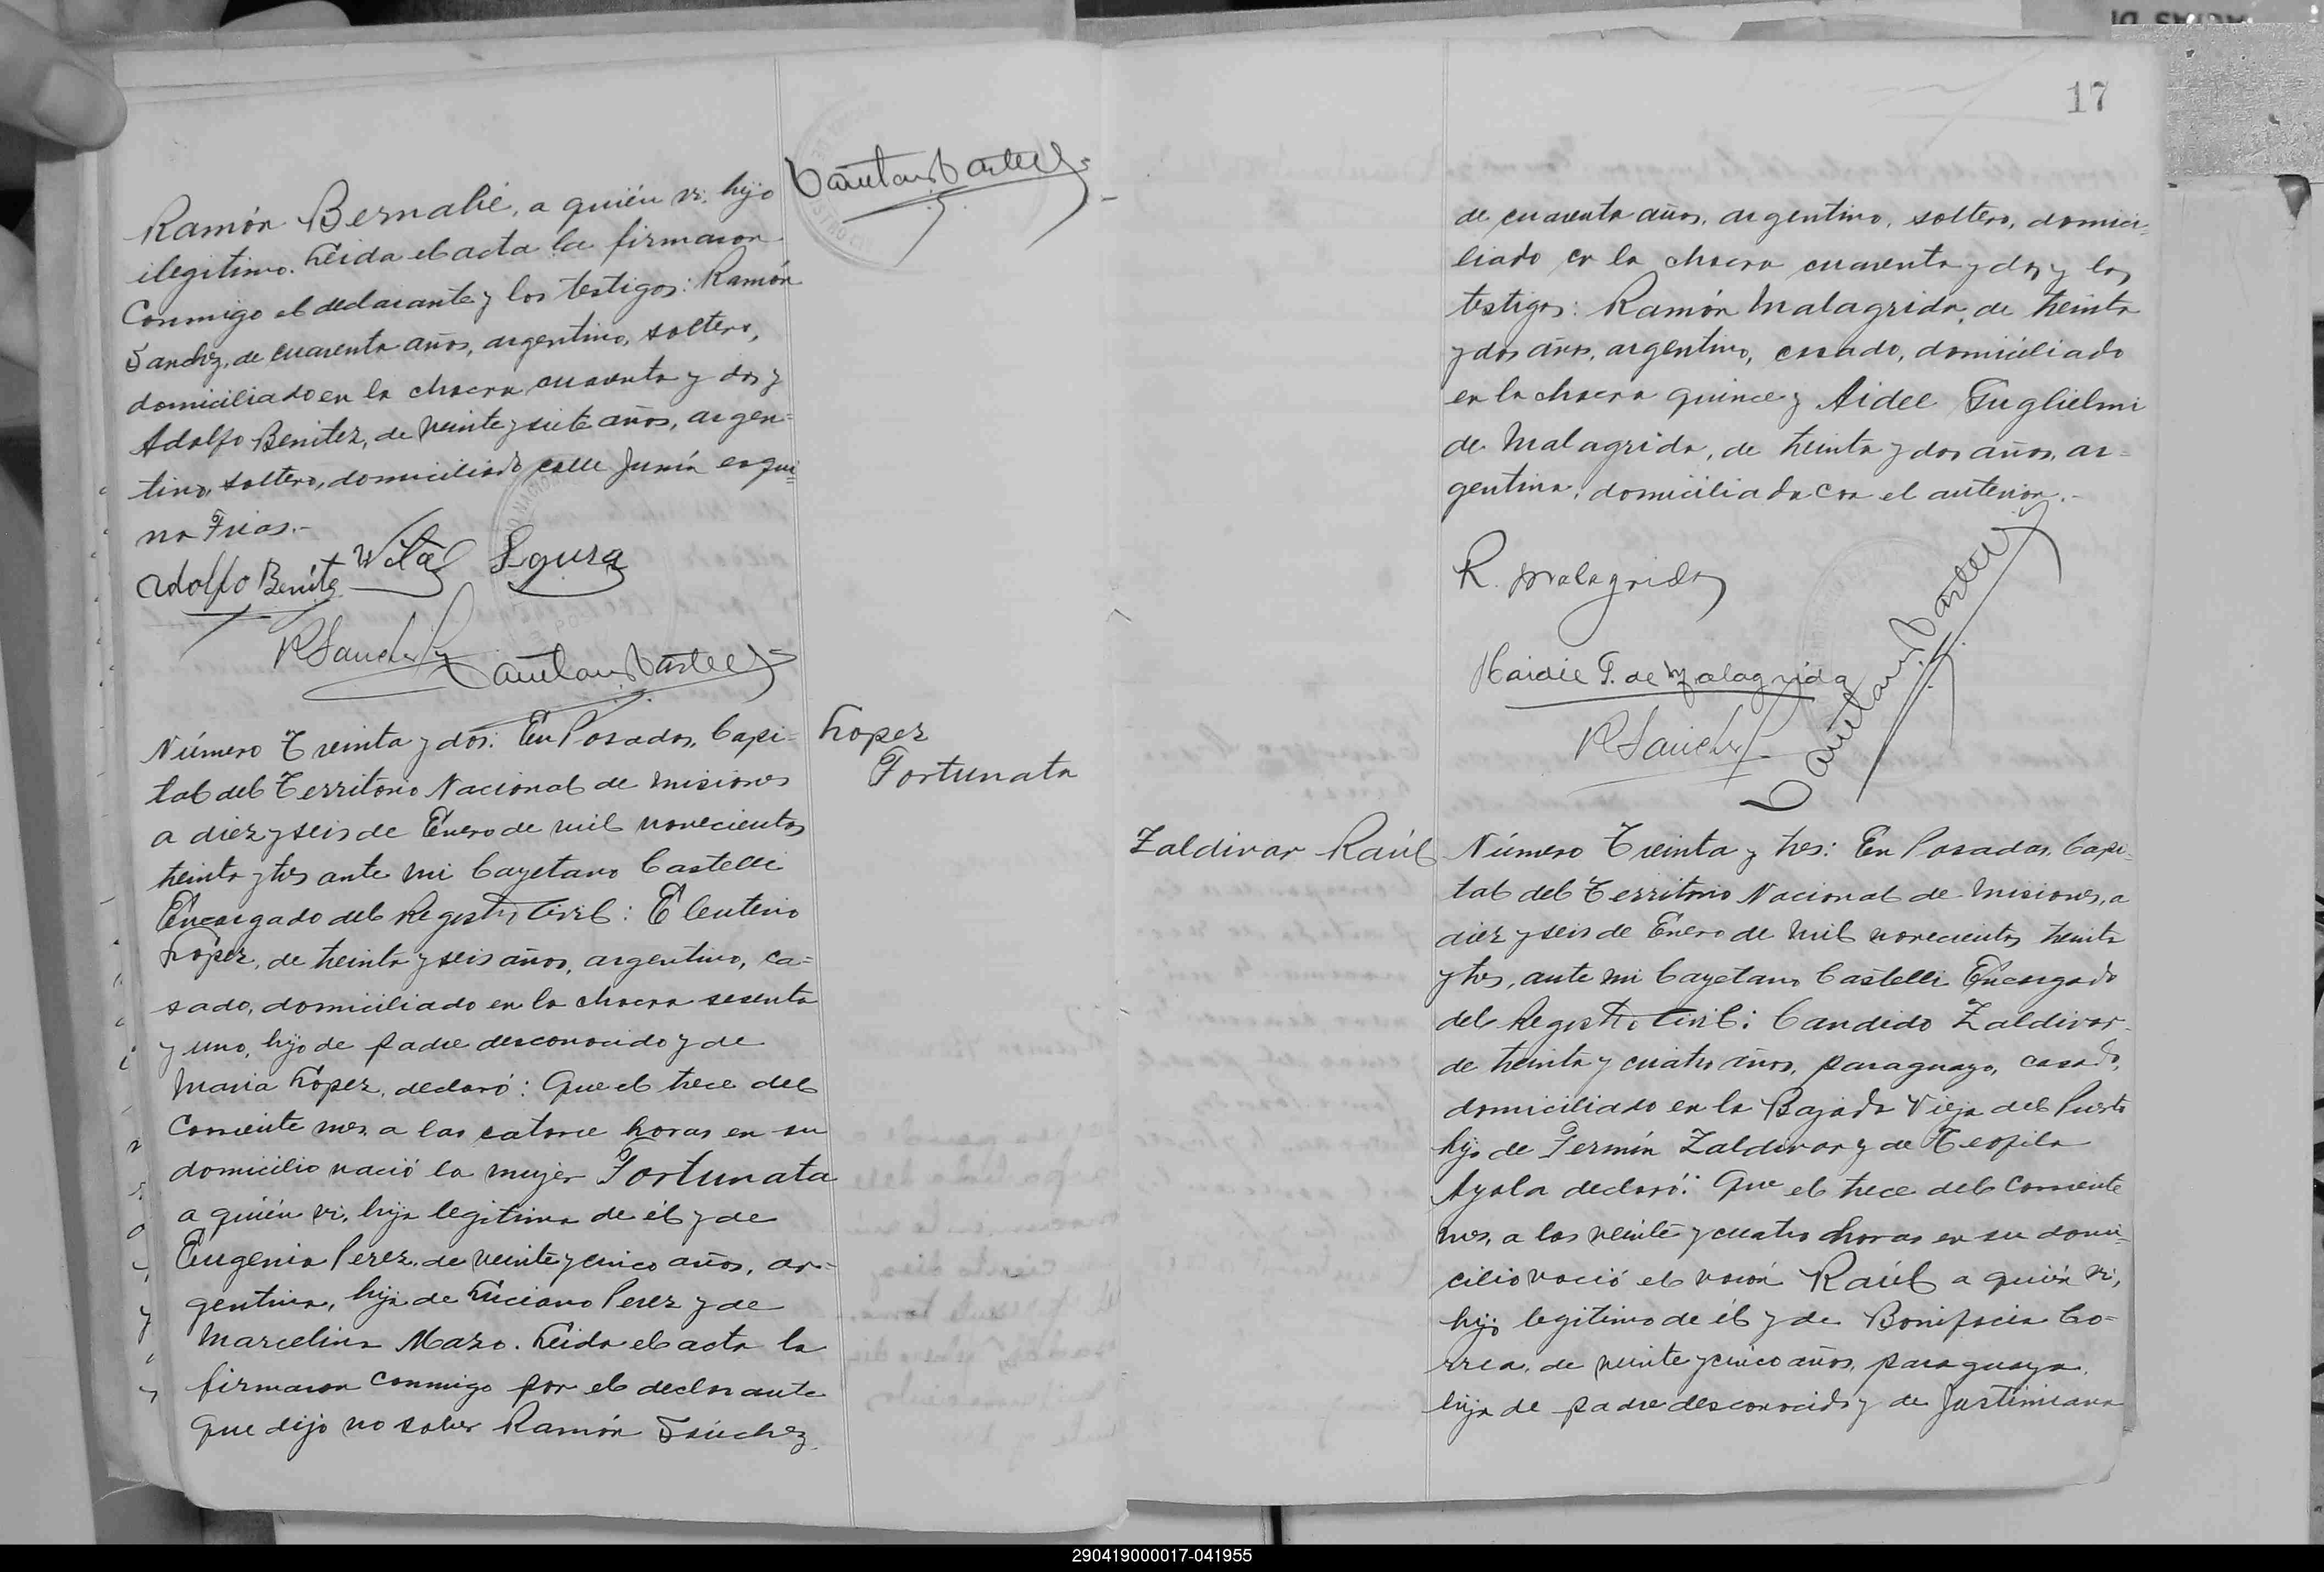 Ramón Bernabé, a quién vi, hijo
ilegitimo. Leida el acta la firmaron
Conmigo el declarante y los testigos: Ramón
Sanchez, de cuarenta años, argentino, soltero,
domiciliado en la chacra cuarenta y dos y
Adolfo Benitez, de veinte y siete años, argen=
tino, soltero, domiciliado calle Junín esqui=
na Frias.-
Adolfo Benítez
RSanchez
Número Treinta y dos: En Posadas, Capi=
tal del Territorio Nacional de Misiones
a diez y seis de Enero de mil novecientos
treinta y tres ante mi Cayetano Castelli
Encargado del Registro Civil: Eleuterio
López, de treinta y seis años, argentino, ca=
sado, domiciliado en la chacra sesenta
y uno, hijo de padre desconocido y de
Maria López, declaró: Que el trece del
Corriente mes a las catorce horas en su
domicilio nació la mujer Fortunata
a quién vi, hija legitima de él y de
Eugenia Perez, de veinte y cinco años, ar=
gentina, hija de Luciano Perez y de
Marcelina Mazo. Leida el acta la
firmaron conmigo por el declarante
que dijo no saber Ramón Sánchez
Lopez
Fortunata
17
de cuarenta años, argentino, soltero, domici=
liado en la chacra cuarenta y dos y los
testigos: Ramón Malagrida, de treinta
y dos años, argentino, casado, domiciliado
en la chacra quince y Aidee Guglielmi
de Malagrida, de treinta y dos años, ar=
gentina, domiciliada con el anterior.-
R. Malagrida
Haidée G. de Malagrida
RSanchez
Zaldivar Raúl
Número Treinta y tres: En Posadas, Capi=
tal del Territorio Nacional de Misiones, a
diez y seis de Enero de mil novecientos treinta
y tres, ante mi Cayetano Castelli Encargado
del Registro Civil: Candido Zaldivar
de treinta y cuatro años, paraguayo, casado,
domiciliado en la Bajada Vieja del Puerto
hijo de Fermín Zaldivar y de Teofila
Ayala declaró: Que el trece del Corriente
mes, a las veinte y cuatro horas en su domi=
cilio nació el varón Raúl a quién vi,
hijo legitimo de él y de Bonifacia Co=
rrea, de veinte y cinco años, paraguaya,
hija de padre desconocido y de Justiniana
290419000017-041955